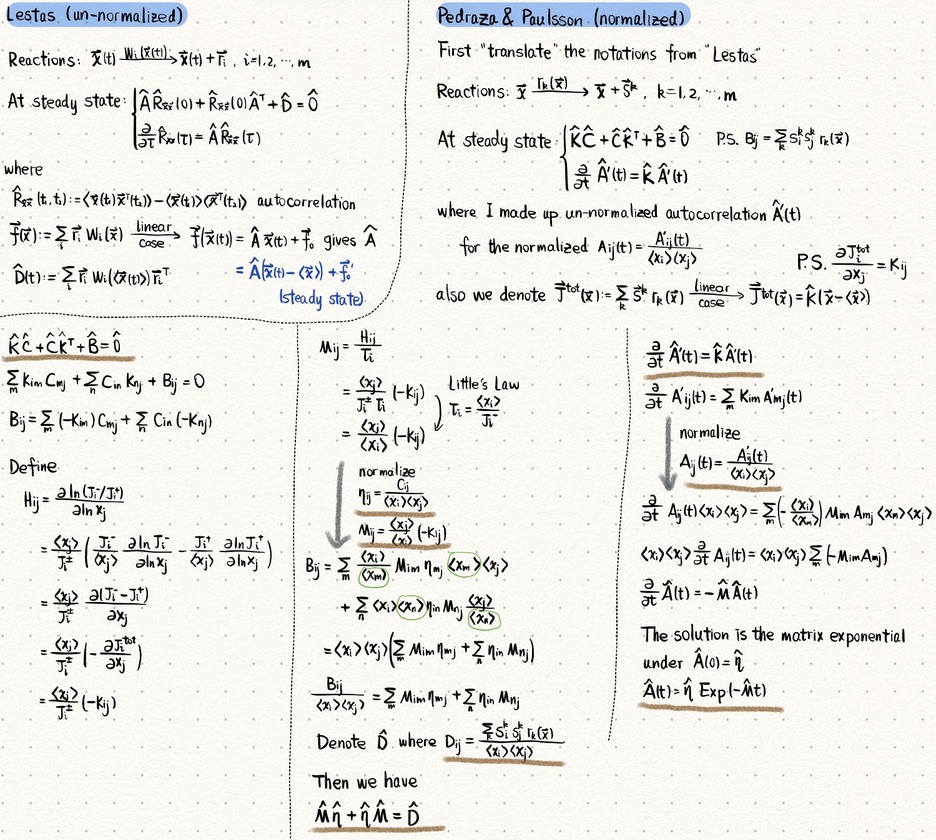 Lestas (un-normalized)
Reactions: x⃗(t) —Wᵢ(x⃗(t))→ x⃗(t) + r⃗ᵢ , i=1,2, ⋯, m
At steady state: { ÂR̂x⃗x⃗(0) + R̂x⃗x⃗(0)Âᵀ + D̂ = 0̂
∂/∂τ R̂x⃗x⃗(τ) = ÂR̂x⃗x⃗(τ)
where
R̂x⃗x⃗(t₁,t₂) := <x⃗(t₁)x⃗ᵀ(t₂)> - <x⃗(t₁)><x⃗ᵀ(t₂)> autocorrelation
f⃗(x⃗) := Σᵢ r⃗ᵢ Wᵢ(x⃗) —linear case→ f⃗(x⃗(t)) = Â x⃗(t) + f⃗₀ gives Â
= Â(x⃗(t) - <x⃗>) + f⃗₀'
D̂(t) := Σᵢ r⃗ᵢ Wᵢ(<x⃗(t)>) r⃗ᵢᵀ
(steady state)
Pedraza & Paulsson (normalized)
First "translate" the notations from "Lestas"
Reactions: x⃗ —rₖ(x⃗)→ x⃗ + S⃗ᵏ , k=1,2, ⋯, m
At steady state: { K̂Ĉ + ĈK̂ᵀ + B̂ = 0̂ P.S. Bᵢⱼ = Σₖ Sᵢᵏ Sⱼᵏ rₖ(x⃗)
∂/∂t Â'(t) = K̂ Â'(t)
where I made up un-normalized autocorrelation Â'(t)
for the normalized Aᵢⱼ(t) = A'ᵢⱼ(t)/<xᵢ><xⱼ>
P.S. ∂Jᵢᵗᵒᵗ/∂xⱼ = Kᵢⱼ
also we denote J⃗ᵗᵒᵗ(x⃗) := Σₖ S⃗ᵏ rₖ(x⃗) —linear case→ J⃗ᵗᵒᵗ(x⃗) = K̂(x⃗ - <x⃗>)
K̂Ĉ + ĈK̂ᵀ + B̂ = 0̂
Σₘ Kᵢₘ Cₘⱼ + Σₙ Cᵢₙ Kₙⱼ + Bᵢⱼ = 0
Bᵢⱼ = Σₘ (-Kᵢₘ) Cₘⱼ + Σₙ Cᵢₙ (-Kₙⱼ)
Define
Hᵢⱼ = ∂ln(Jᵢ⁻/Jᵢ⁺)/∂ln xⱼ
= <xⱼ>/Jᵢ± ( Jᵢ⁻/<xⱼ> ∂lnJᵢ⁻/∂lnxⱼ - Jᵢ⁺/<xⱼ> ∂lnJᵢ⁺/∂lnxⱼ )
= <xⱼ>/Jᵢ± ∂(Jᵢ⁻-Jᵢ⁺)/∂xⱼ
= <xⱼ>/Jᵢ± (-∂Jᵢᵗᵒᵗ/∂xⱼ)
= <xⱼ>/Jᵢ± (-Kᵢⱼ)
Mᵢⱼ = Hᵢⱼ/τᵢ
= <xⱼ>/Jᵢ±τᵢ (-Kᵢⱼ)
Little's Law
τᵢ = <xᵢ>/Jᵢ⁻
= <xⱼ>/<xᵢ> (-Kᵢⱼ)
normalize
ηᵢⱼ = Cᵢⱼ/<xᵢ><xⱼ>
Mᵢⱼ = <xⱼ>/<xᵢ> (-Kᵢⱼ)
Bᵢⱼ = Σₘ <xᵢ>/<xₘ> Mᵢₘ ηₘⱼ <xₘ><xⱼ>
+ Σₙ <xᵢ><xₙ> ηᵢₙ Mₙⱼ <xⱼ>/<xₙ>
= <xᵢ><xⱼ>(Σₘ Mᵢₘ ηₘⱼ + Σₙ ηᵢₙ Mₙⱼ)
Bᵢⱼ/<xᵢ><xⱼ> = Σₘ Mᵢₘ ηₘⱼ + Σₙ ηᵢₙ Mₙⱼ
Denote D̂ where Dᵢⱼ = Σₖ Sᵢᵏ Sⱼᵏ rₖ(x⃗)/<xᵢ><xⱼ>
Then we have
M̂η̂ + η̂M̂ = D̂
∂/∂t Â'(t) = K̂ Â'(t)
∂/∂t A'ᵢⱼ(t) = Σₘ Kᵢₘ A'ₘⱼ(t)
normalize
Aᵢⱼ(t) = A'ᵢⱼ(t)/<xᵢ><xⱼ>
∂/∂t Aᵢⱼ(t)<xᵢ><xⱼ> = Σₘ(-<xᵢ>/<xₘ>) Mᵢₘ Aₘⱼ <xₘ><xⱼ>
<xᵢ><xⱼ> ∂/∂t Aᵢⱼ(t) = <xᵢ><xⱼ> Σₘ (-MᵢₘAₘⱼ)
∂/∂t Â(t) = -M̂ Â(t)
The solution is the matrix exponential
under Â(0) = η̂
Â(t) = η̂ Exp(-M̂t)